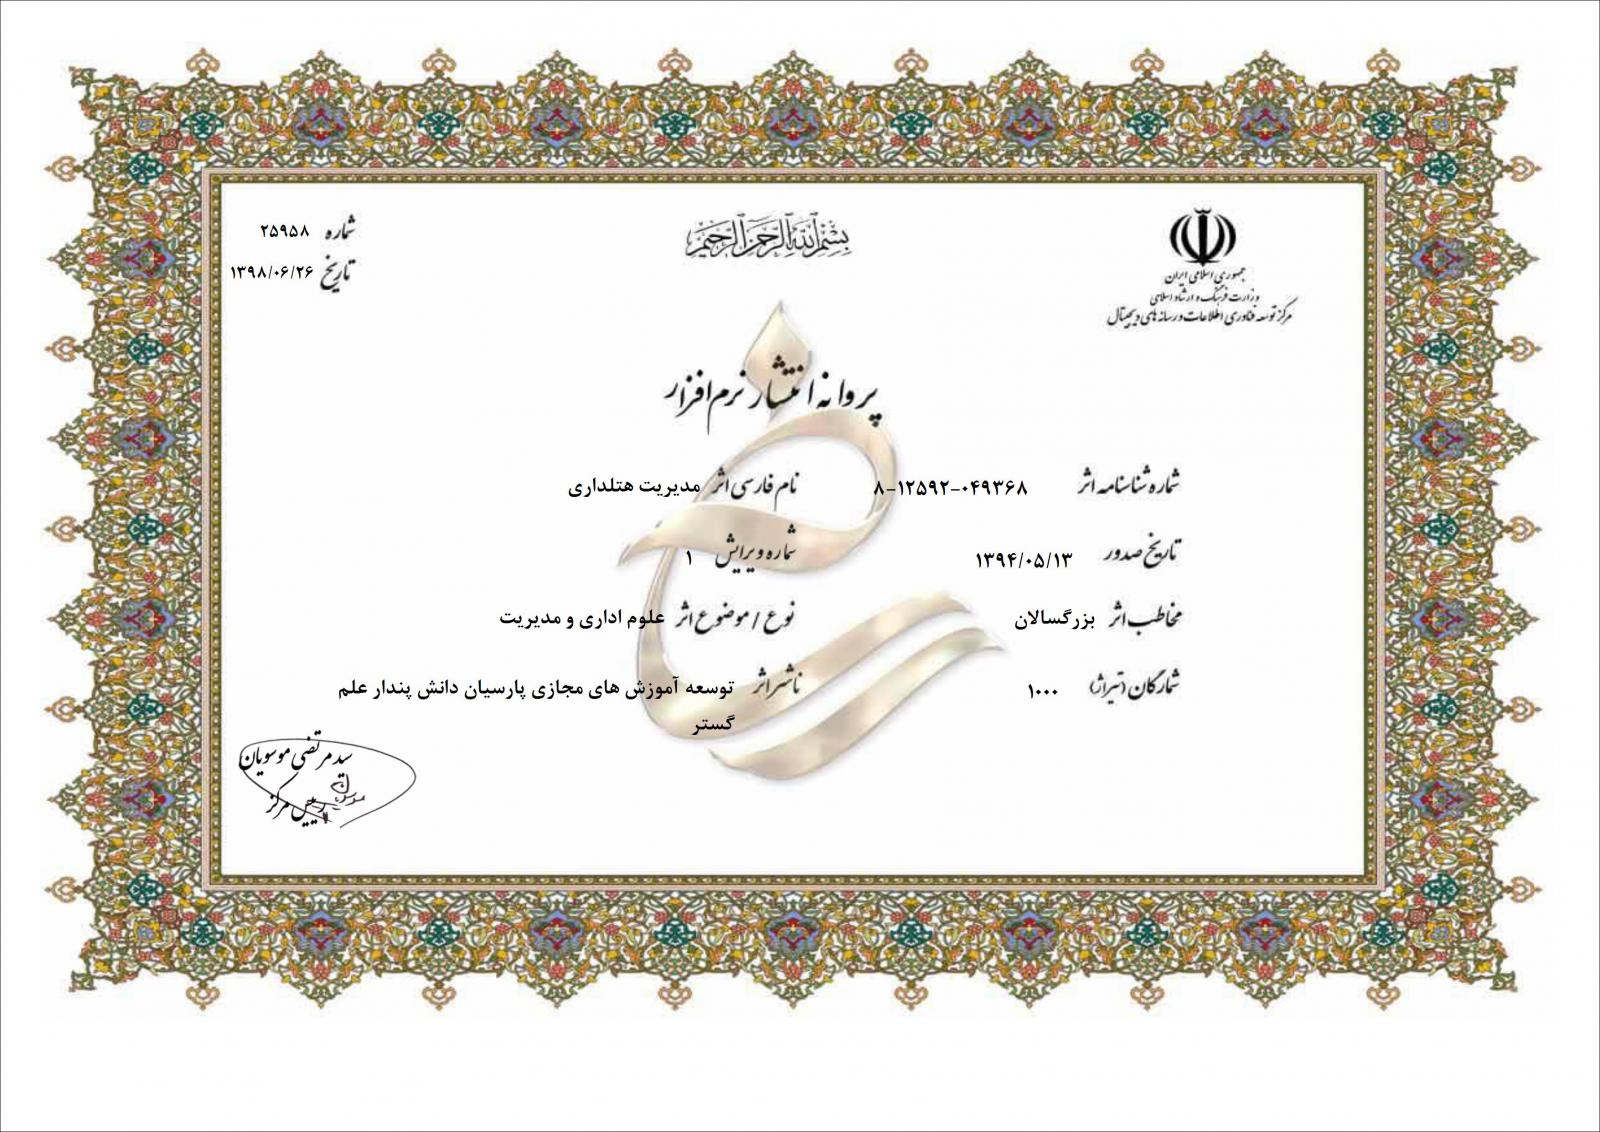 بسم الله الرحمن الرحیم
جمهوری اسلامی ایران
وزارت فرهنگ و ارشاد اسلامی
مرکز توسعه فناوری اطلاعات و رسانه های دیجیتال
شماره ۲۵۹۵۸
تاریخ ۱۳۹۸/۰۶/۲۶
پروانه انتشار نرم افزار
شماره شناسنامه اثر ۸-۱۲۵۹۲-۰۴۹۳۶۸
نام فارسی اثر مدیریت هتلداری
تاریخ صدور ۱۳۹۴/۰۵/۱۳
شماره ویرایش ۱
مخاطب اثر بزرگسالان
نوع / موضوع اثر علوم اداری و مدیریت
شمارگان (تیراژ) ۱۰۰۰
ناشر اثر توسعه آموزش های مجازی پارسیان دانش پندار علم
گستر
سید مرتضی موسویان
رییس مرکز